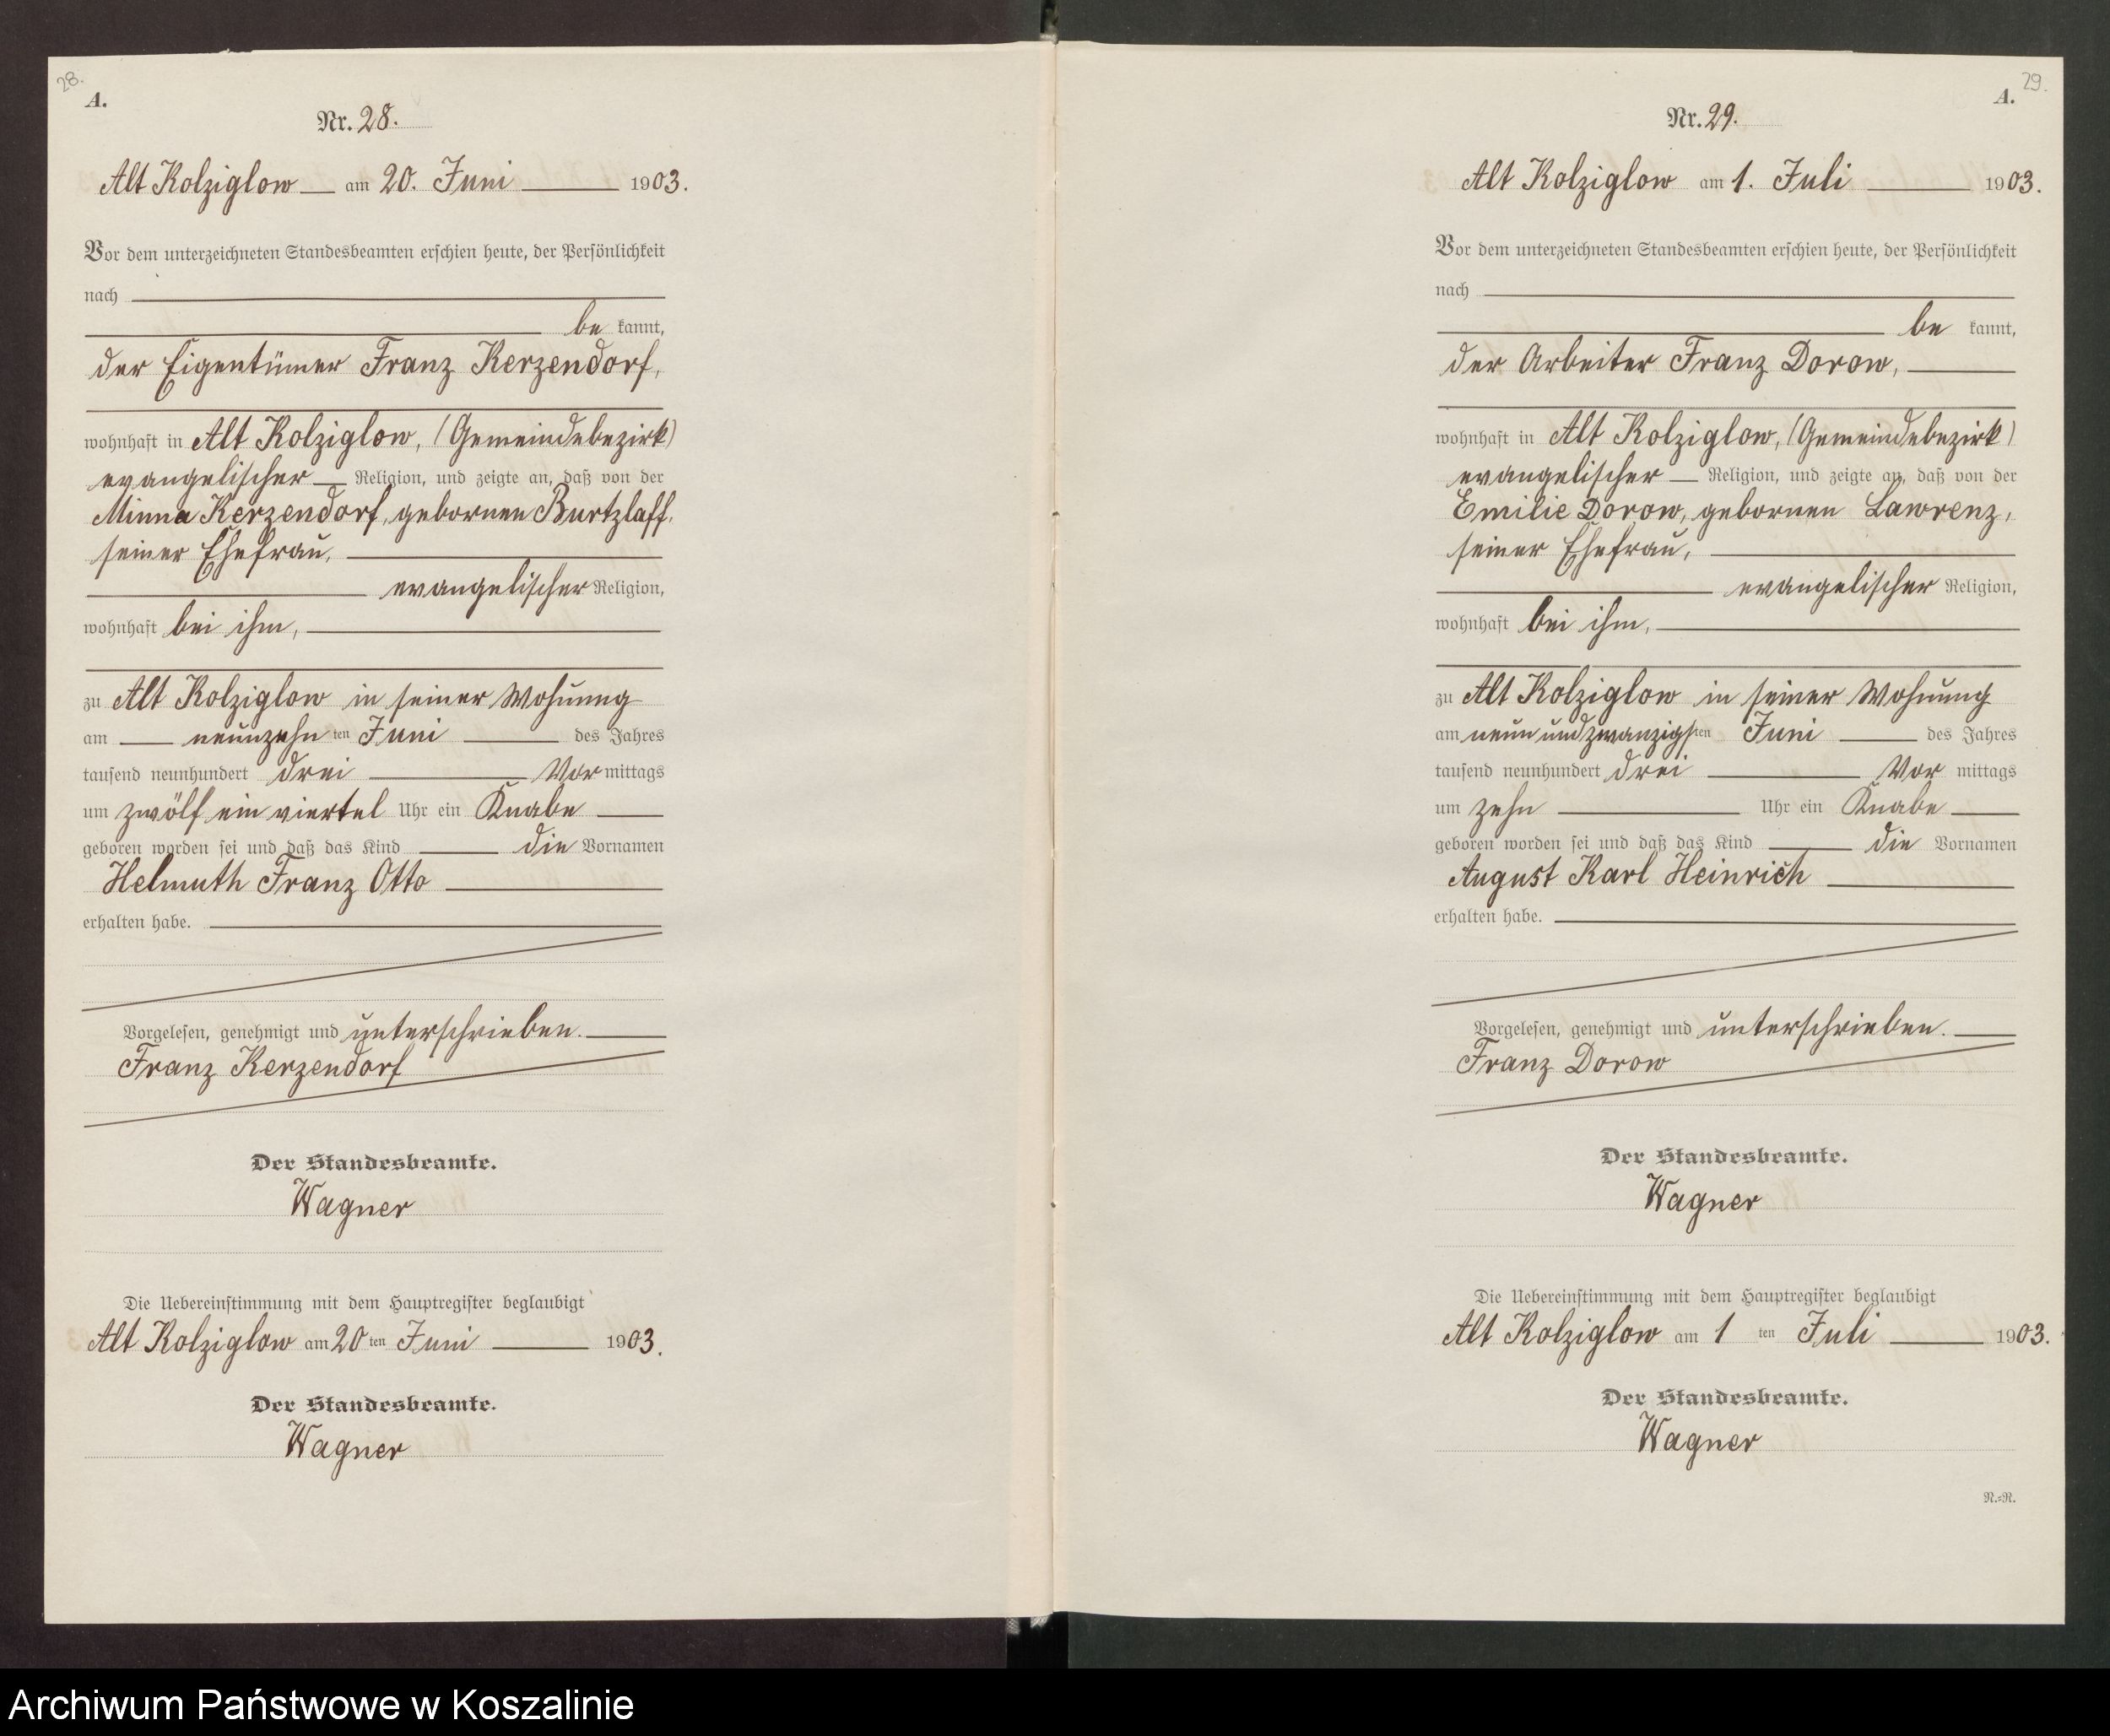 28.
A.
Nr. 28.
Alt Kolziglow am 20. Juni 1903.
Vor dem unterzeichneten Standesbeamten erschien heute, der Persönlichkeit
nach
be kannt,
der Eigentümer Franz Kerzendorf,
wohnhaft in Alt Kolziglow, (Gemeindebezirk)
evangelischer Religion, und zeigte an, daß von der
Minna Kerzendorf, gebornen Burtzlaff,
seiner Ehefrau,
evangelischer Religion,
wohnhaft bei ihm,
zu Alt Kolziglow in seiner Wohnung
am neunzehn ten Juni des Jahres
tausend neunhundert drei Vor mittags
um zwölf ein viertel Uhr ein Knabe
geboren worden sei und daß das Kind die Vornamen
Helmuth Franz Otto
erhalten habe.
Vorgelesen, genehmigt und unterschrieben.
Franz Kerzendorf
Der Standesbeamte.
Wagner
Die Uebereinstimmung mit dem Hauptregister beglaubigt
Alt Kolziglow am 20 ten Juni 1903.
Der Standesbeamte.
Wagner
29.
A.
Nr. 29.
Alt Kolziglow am 1. Juli 1903.
Vor dem unterzeichneten Standesbeamten erschien heute, der Persönlichkeit
nach
be kannt,
der Arbeiter Franz Dorow,
wohnhaft in Alt Kolziglow, (Gemeindebezirk)
evangelischer Religion, und zeigte an, daß von der
Emilie Dorow, gebornen Lawrenz,
seiner Ehefrau,
evangelischer Religion,
wohnhaft bei ihm,
zu Alt Kolziglow in seiner Wohnung
am neun und zwanzigs ten Juni des Jahres
tausend neunhundert drei Vor mittags
um zehn Uhr ein Knabe
geboren worden sei und daß das Kind die Vornamen
August Karl Heinrich
erhalten habe.
Vorgelesen, genehmigt und unterschrieben.
Franz Dorow
Der Standesbeamte.
Wagner
Die Uebereinstimmung mit dem Hauptregister beglaubigt
Alt Kolziglow am 1 ten Juli 1903.
Der Standesbeamte.
Wagner
N.=R.
Archiwum Państwowe w Koszalinie